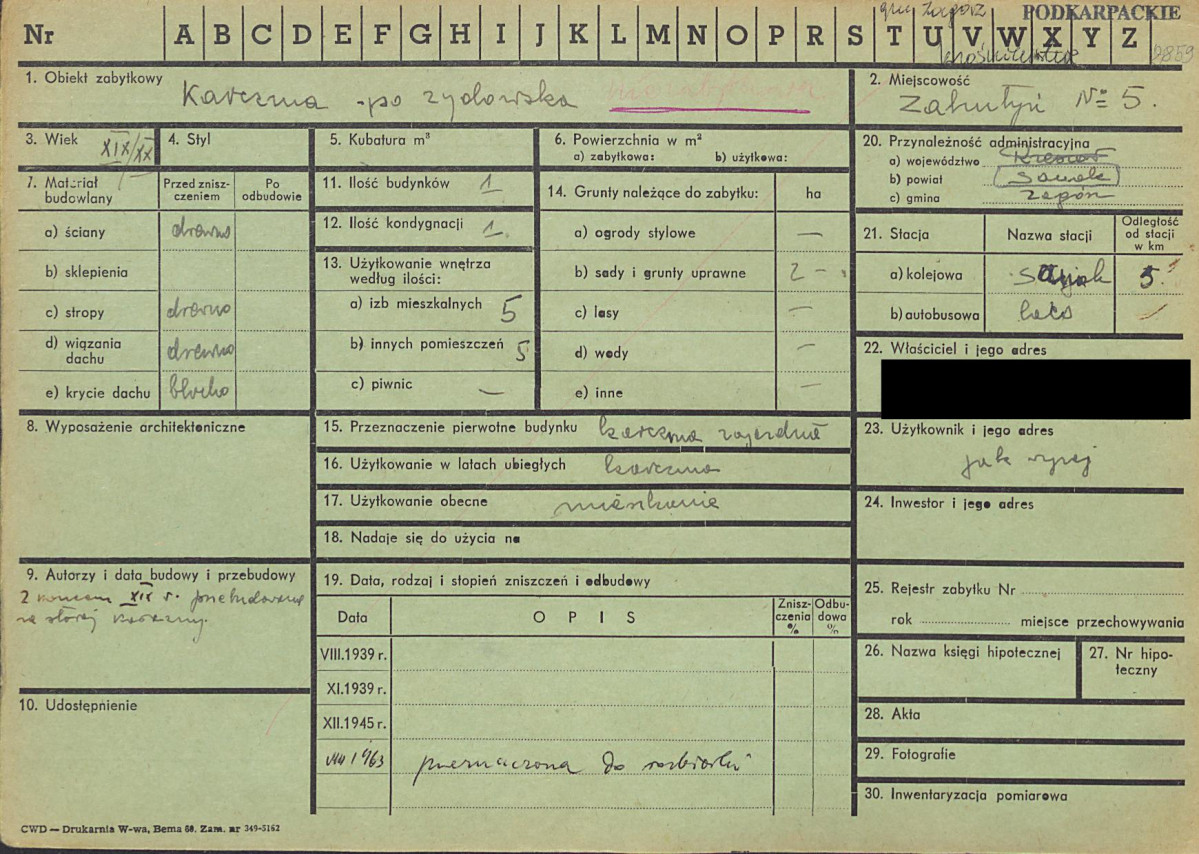 PODKARPACKIE
Nr A B C D E F G H I J K L M N O P R S T U V W X Y Z
9859
1. Obiekt zabytkowy
Karczma - po żydowska
2. Miejscowość
Zahutyń Nº 5.
3. Wiek XIX/XX
4. Styl
5. Kubatura m³
6. Powierzchnia w m²
a) zabytkowa: b) użytkowa:
20. Przynależność administracyjna
a) województwo
b) powiat Sanok
c) gmina
7. Materiał budowlany
Przed zniszczeniem
Po odbudowie
a) ściany drewno
b) sklepienia
c) stropy drewno
d) wiązania dachu drewno
e) krycie dachu blacha
11. Ilość budynków 1
12. Ilość kondygnacji 1.
13. Użytkowanie wnętrza według ilości:
a) izb mieszkalnych 5
b) innych pomieszczeń 5
c) piwnic —
14. Grunty należące do zabytku: ha
a) ogrody stylowe —
b) sady i grunty uprawne 2 -
c) lasy —
d) wody —
e) inne —
21. Stacja
Nazwa stacji
Odległość od stacji w km
a) kolejowa Sanok 5.
b) autobusowa
22. Właściciel i jego adres
8. Wyposażenie architektoniczne
15. Przeznaczenie pierwotne budynku karczma zajezdna
16. Użytkowanie w latach ubiegłych karczma
17. Użytkowanie obecne mieszkanie
18. Nadaje się do użycia na
23. Użytkownik i jego adres
jak wyżej
24. Inwestor i jego adres
9. Autorzy i data budowy i przebudowy
Z końcem XIX w. przebudowana
ze starej karczmy.
19. Data, rodzaj i stopień zniszczeń i odbudowy
Data
O P I S
Zniszczenia %
Odbudowa %
VIII.1939 r.
XI.1939 r.
XII.1945 r.
VIII 1963 przeznaczona do rozbiórki
25. Rejestr zabytku Nr
rok miejsce przechowywania
26. Nazwa księgi hipotecznej
27. Nr hipoteczny
10. Udostępnienie
28. Akta
29. Fotografie
30. Inwentaryzacja pomiarowa
CWD — Drukarnia W-wa, Bema 60. Zam. nr 349-5162